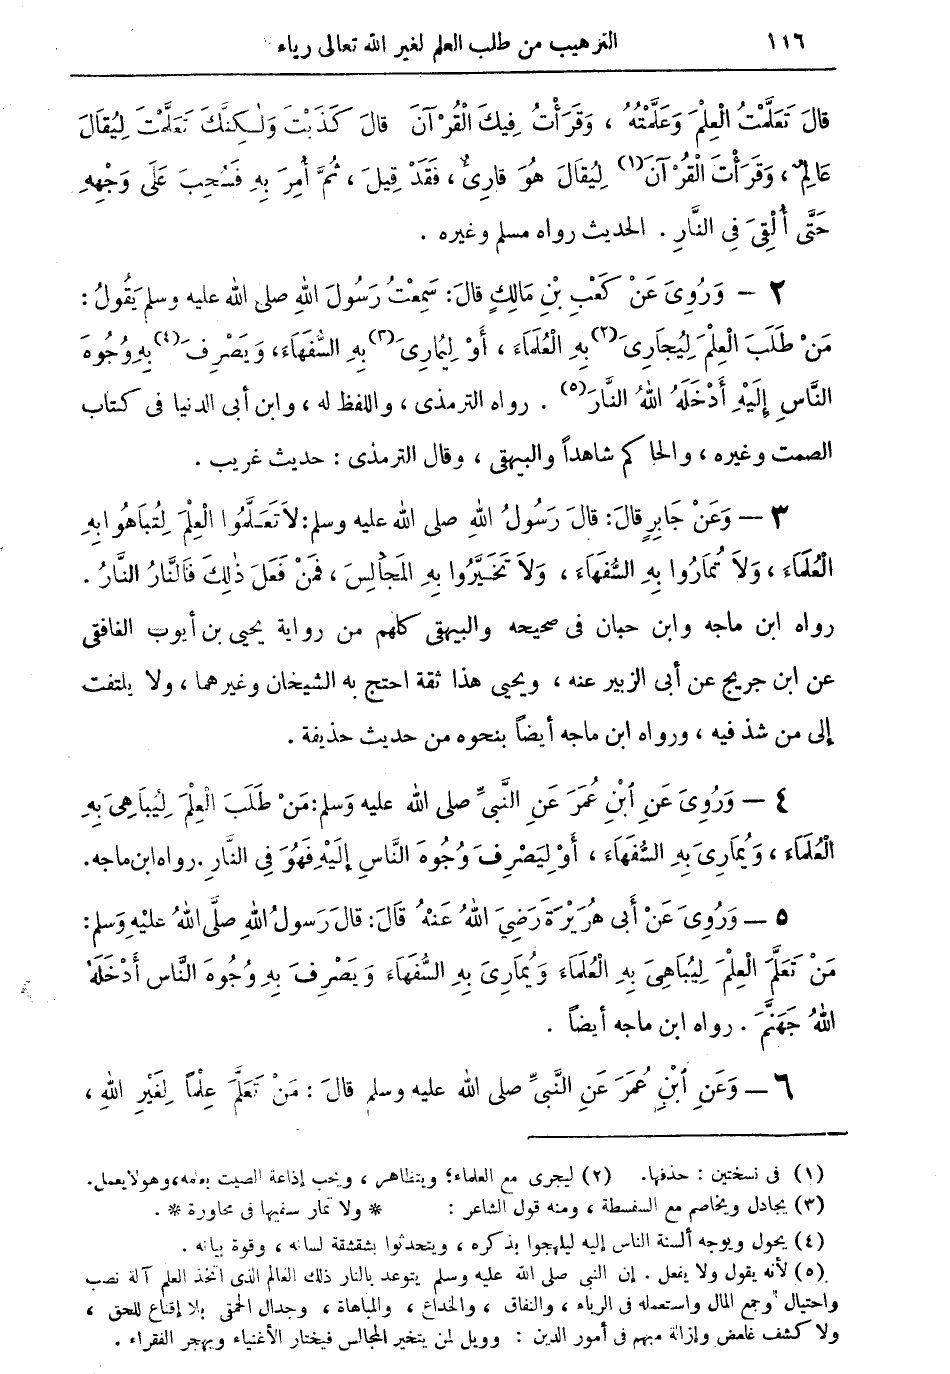 ١١٦ الترهيب من طلب العلم لغير الله تعالى رياء
قالَ تَعَلَّمْتُ الْعِلْمَ وَعَلَّمْتُهُ ، وَقَرَأْتُ فِيكَ الْقُرْآنَ قالَ كَذَبْتَ وَلٰكِنَّكَ تَعَلَّمْتَ لِيُقَالَ
عَالِمٌ ، وَقَرَأْتَ الْقُرْآنَ (١) لِيُقَالَ هُوَ قارِئٌ ، فَقَدْ قِيلَ ، ثُمَّ أُمِرَ بِهِ فَسُحِبَ عَلَى وَجْهِهِ
حَتَّى أُلْقِىَ فِى النَّارِ . الحديث رواه مسلم وغيره .
٢ – وَرُوِىَ عَنْ كَعْبِ بْنِ مَالِكٍ قالَ : سَمِعْتُ رَسُولَ اللهِ صلى الله عليه وسلم يَقُولُ :
مَنْ طَلَبَ الْعِلْمَ لِيُجَارِىَ (٢) بِهِ الْعُلَمَاءَ ، أَوْ لِيُمَارِىَ (٣) بِهِ السُّفَهَاءَ، وَيَصْرِفَ (٤) بِهِ وُجُوهَ
النَّاسِ إِلَيْهِ أَدْخَلَهُ اللهُ النَّارَ (٥) . رواه الترمذى ، واللفظ له ، وابن أبى الدنيا فى كتاب
الصمت وغيره ، والحاكم شاهداً والبيهقى ، وقال الترمذى : حديث غريب .
٣ – وَعَنْ جَابِرٍ قالَ : قالَ رَسُولُ اللهِ صلى الله عليه وسلم : لاَ تَعَلَّمُوا الْعِلْمَ لِتُبَاهُوا بِهِ
الْعُلَمَاءَ ، وَلاَ تُمَارُوا بِهِ السُّفَهَاءَ ، وَلاَ تَخَيَّرُوا بِهِ المَجَالِسَ ، فَمَنْ فَعَلَ ذٰلِكَ فَالنَّارُ النَّارُ .
رواه ابن ماجه وابن حبان فى صحيحه والبيهقى كلهم من رواية يحيى بن أيوب الغافقى
عن ابن جريج عن أبى الزبير عنه ، ويحيى هذا ثقة احتج به الشيخان وغيرهما ، ولا يلتفت
إلى من شذ فيه ، ورواه ابن ماجه أيضاً بنحوه من حديث حذيفة .
٤ – وَرُوِىَ عَنِ ابْنِ عُمَرَ عَنِ النَّبِىِّ صلى الله عليه وَسلم : مَنْ طَلَبَ الْعِلْمَ لِيُبَاهِىَ بِهِ
الْعُلَمَاءَ ، وَيُمَارِىَ بِهِ السُّفَهَاءَ ، أَوْ لِيَصْرِفَ وُجُوهَ النَّاسِ إِلَيْهِ فَهُوَ فِى النَّارِ . رواه ابن ماجه.
٥ – وَرُوِىَ عَنْ أَبِى هُرَيْرَةَ رَضِىَ اللهُ عَنْهُ قَالَ : قالَ رَسولُ اللهِ صلَّى اللهُ عليْهِ وَسلم :
مَنْ تَعَلَّمَ الْعِلْمَ لِيُبَاهِىَ بِهِ الْعُلَمَاءَ وَيُمَارِىَ بِهِ السُّفَهَاءَ وَيَصْرِفَ بِهِ وُجُوهَ النَّاسِ أَدْخَلَهُ
اللهُ جَهَنَّمَ . رواه ابن ماجه أيضاً .
٦ – وَعَنِ ابْنِ عُمَرَ عَنِ النَّبِىِّ صلى الله عليه وسلم قالَ : مَنْ تَعَلَّمَ عِلْمًا لِغَيْرِ اللهِ ،
(١) فى نسختين : حذفها. (٢) ليجرى مع العلماء؛ ويتظاهر ، ويحب إذاعة الصيت بعلمه، وهو لا يعمل.
(٣) يجادل ويخاصم مع السفسطة ، ومنه قول الشاعر : * ولا تمار سفيها فى محاورة * .
(٤) يحول ويوجه ألسنة الناس إليه ليلهجوا بذكره ، ويتحدثوا بشقشقة لسانه ، وقوة بيانه .
(٥) لأنه يقول ولا يفعل . إن النبى صلى الله عليه وسلم يتوعد بالنار ذلك العالم الذى اتخذ العلم آلة نصب
واحتيال وجمع المال واستعمله فى الرياء ، والنفاق ، والخداع ، والمباهاة ، وجدال الحمقى بلا إقناع للحق ،
ولا كشف غامض وإزالة مبهم فى أمور الدين : وويل لمن يتخير المجالس فيختار الأغنياء ويهجر الفقراء .